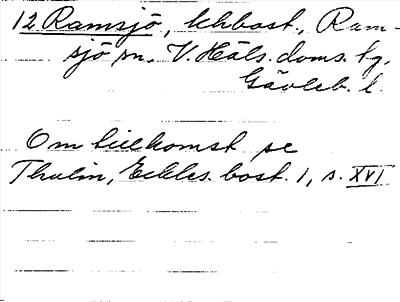 12 Ramsjö, khbost., Ram-
sjö sn. V. Häls. doms. tg.
Gävleb. l.
Om tillkomst se
Thulin, Eckles. bost. 1, s. XVI